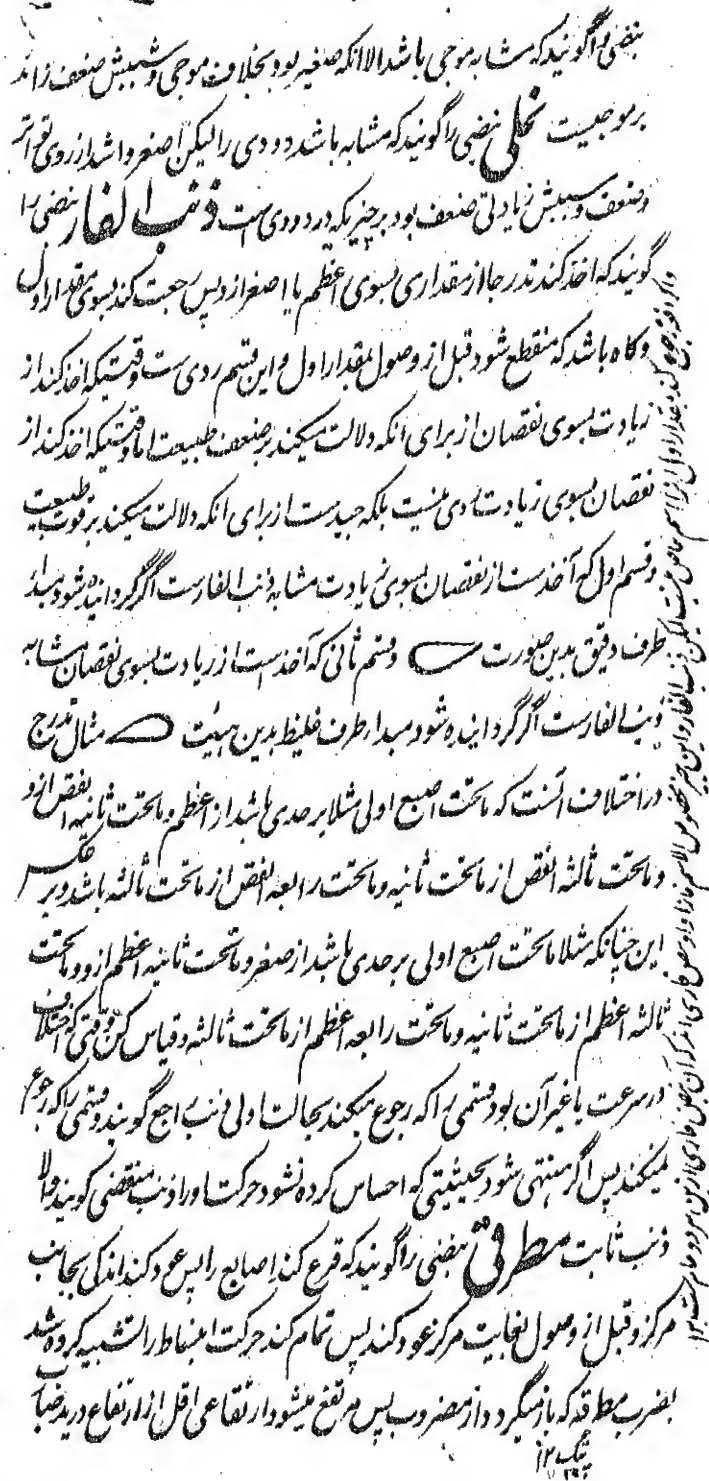 نبضی را گویند که مشابه موجی باشد الا انکه صغیر بود بخلاف موجی و سببش ضعف زائد
بر موجیست نملی نبضی را گویند که مشابه باشد دودی را لیکن اصغر و اشد از روی تواتر
و ضعف و سببش زیادتی ضعف بود بر چیزیکه در دودی است ذنب الفار نبضی را
گویند که اخذ کند تدرجا از مقداری بسوی اعظم یا اصغر از و پس رجعت کند بسوی مقدار اول
و کاه باشد که منقطع شود قبل از وصول بمقدار اول و این قسم ردی ست وقتیکه اخذ کند از
زیادت بسوی نقصان از برای انکه دلالت میکند بر ضعف طبیعت اما وقتیکه اخذ کند از
نقصان بسوی زیادت ردی نیست بلکه جیدست از برای انکه دلالت میکند بر قوت طبیعت
و قسم اول که آخذست از نقصان بسوی زیادت مشابه ذنب الفارست اگر گردانیده شود مبدا
طرف دقیق بدین صورت و قسم ثانی که آخذ است از زیادت بسوی نقصان مشابه
ذنب الفارست اگر گردانیده شود مبدا طرف غلیظ بدین هیئت مثال تدرج
در اختلاف انست که ماتحت اصبع اولی مثلا بر حدی باشد از اعظم و ماتحت ثانیه انقص ازو
و ماتحت ثالثه انقص از ماتحت ثانیه و ماتحت رابعه انقص از ماتحت ثالثه باشد و بر عکس
این چنانکه مثلا ماتحت اصبع اولی بر حدی باشد از صغر و ماتحت ثانیه اعظم ازو و ماتحت
ثالثه اعظم از ماتحت ثانیه و ماتحت رابعه اعظم از ماتحت ثالثه و قیاس کن وقتی که اختلاف
در سرعت یا غیر آن بود و قسمی را که رجوع میکند بحالت اولی ذنب راجع گویند و قسمی را که رجوع
نمیکند پس اگر منتهی شود بحیثیتی که احساس کرده نشود حرکت او را ذنب منقضی گویند والا
ذنب ثابت مطرقی نبضی را گویند که قرع کند اصابع را پس عود کند اندکی بجانب
مرکز و قبل از وصول بغایت مرکز عود کند پس تمام کند حرکت انبساط را تشبیه کرده شد
بضرب مطرقه که باز میگردد از مضروب پس مرتفع میشود ارتفاعی اقل از ارتفاع درید ضباب
۱۲